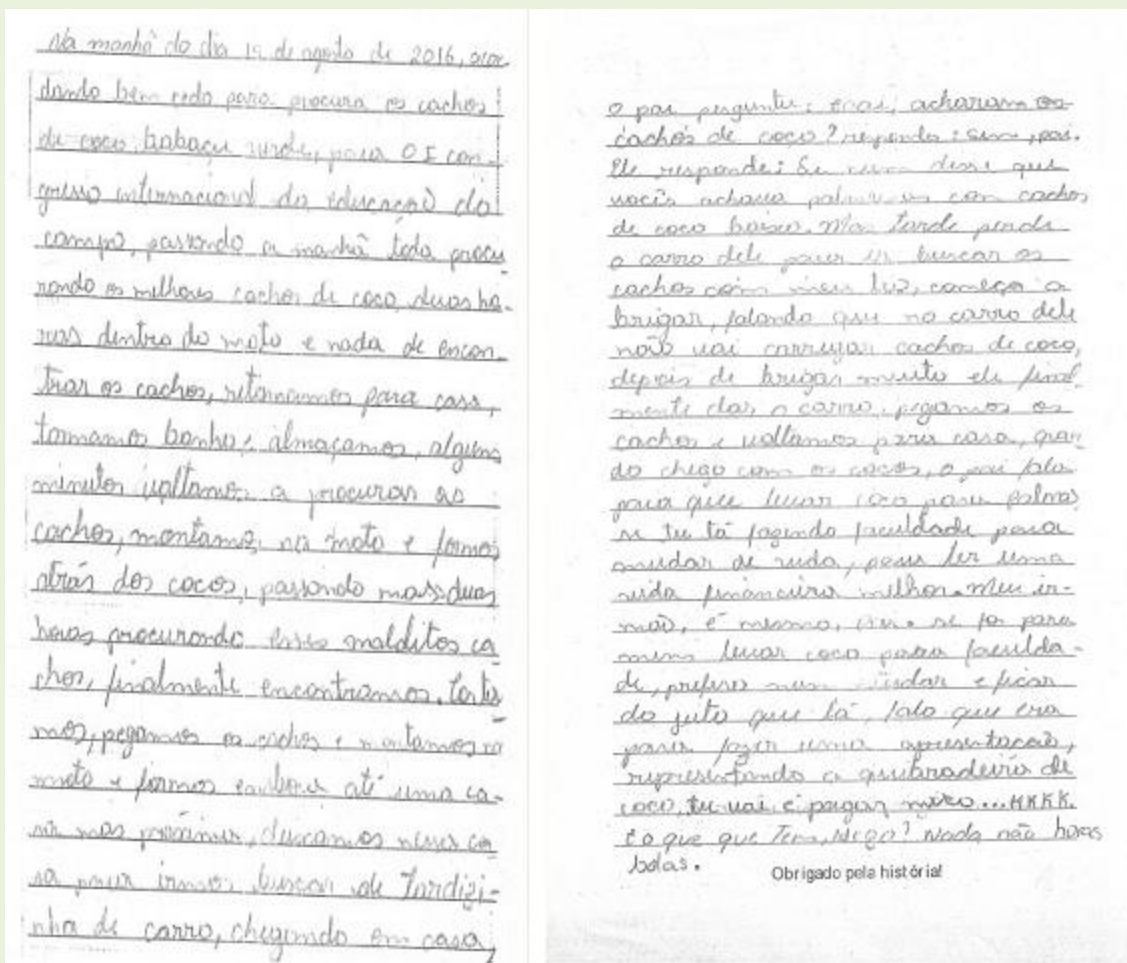 Na manhã do dia 19 de agosto de 2016, acor
dando bem cedo para procura os cachos
de coco babaçu verde, para O I con-
gresso internacional da educação do
campo, passando a manhã toda procu
rando os melhores cachos de coco, duas ho-
ras dentro do mato e nada de encon-
trar os cachos, retornamos para casa,
tommamos banho e almaçamos, alguns
minutos valtamos a procurar os
cachos, montamos na moto e formos
atrás dos cocos, passando mais duas
horas procurando esses malditos ca
chos, finalmente encontramos. Corta
mos, pegamos os cachos e montamos na
moto e formos embora até uma ca-
sa mas próxima, deixamos nessa ca
sa para irmos buscar de Tardizi-
nha de carro, chegando em casa,
o pai pergunta: e aí, acharam os
cachos de coco? respondo: sim, pai.
Ele responde: Se num desse que
vocês achava palmeiras con cachos
de coco baixo. Mas Tarde perde
o carro dele para ir buscar os
cachos com meu tio, começa a
brigar, falando que no carro dele
não vai carregar cachos de coco,
depois de brigar muito ele final-
mente dar o carro, pegamos os
cachos e valtamos para casa, quan
do chego com os cocos, o pai fala
para que levar coco para Palmas
se tu tá fazendo faculdade para
mudar de vida, para ter uma
vida financeira melhor. Meu ir-
mão, é mesmo, se for para
mim levar coco para faculda-
de, prefiro num estudar e ficar
do jeito que tá, falo que era
para fazer uma apresentação,
representando a quebradeira de
coco, tu vai é pagar mico...KKKK.
E o que que Tem, Nego? Nada não horas
bolas.
Obrigado pela história!